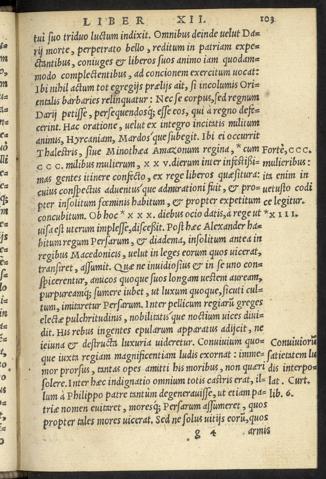 LIBER XII. 103
tui suo triduo luctum indixit. Omnibus deinde uelut Da-
rij morte, perpetrato bello, reditum in patriam expe-
ctantibus, coniuges & liberos suos animo iam quodam-
modo complectentibus, ad concionem exercitum uocat:
Ibi nihil actum tot egregijs prælijs ait, si incolumis Ori-
entalis barbaries relinquatur: Nec se corpus, sed regnum
Darij petisse, persequendosq; esse eos, qui à regno defe-
cerint. Hac oratione, uelut ex integro incitatis militum
animis, Hyrcaniam, Mardos que subegit. Ibi ei occurrit
Thalestris, siue Minothæa Amazonum regina, * cum
CCC. milibus mulierum, xxv. dierum inter infestissi-
mas gentes itinere confecto, ex rege liberos quæsitura:
cuius conspectus aduentus que admirationi fuit, & pro-
pter insolitum fœminis habitum, & propter expetitum
concubitum. Ob hoc * xxx. diebus ocio datis, a rege ut
uisa est uterum implesse, discessit. Post hæc Alexander ha-
bitum regum Persarum, & diadema, insolitum antea in
regibus Macedonicis, uelut in leges eorum quos uicerat,
transiret, assumit. Quæ ne inuidiosius & in se uno con-
spicerentur, amicos quoque suos longam uestem auream,
purpureamq; sumere iubet, ut luxum quoque, sicuti cul-
tum, imitaretur Persarum. Inter pellicum regiarum greges
electæ pulchritudinis, nobilitatis que noctium uices diui-
dit. His rebus ingentes epularum apparatus adijcit, ne
ieiuna & destructa luxuria uideretur. Conuiuium quo-
que iuxta regiam magnificentiam ludis exornat: imme-
mor prorsus, tantas opes amitti his moribus, non quæri
solere. Inter hæc indignatio omnium totis castris erat, il-
lum à Philippo patre tantum degenerauisse, ut etiam pa-
triæ nomen euitaret, moresq; Persarum assumeret, quos
propter tales mores uicerat. Sed ne solus uitijs eorum, quos
g 4 armis
Fortè, CCC.
mulieribus:
ita enim in
uetusto codi
ce legitur.
* XIIII.
Conuiuiorum
satietatem lu
dis interpo-
lat. Curt.
lib. 6.